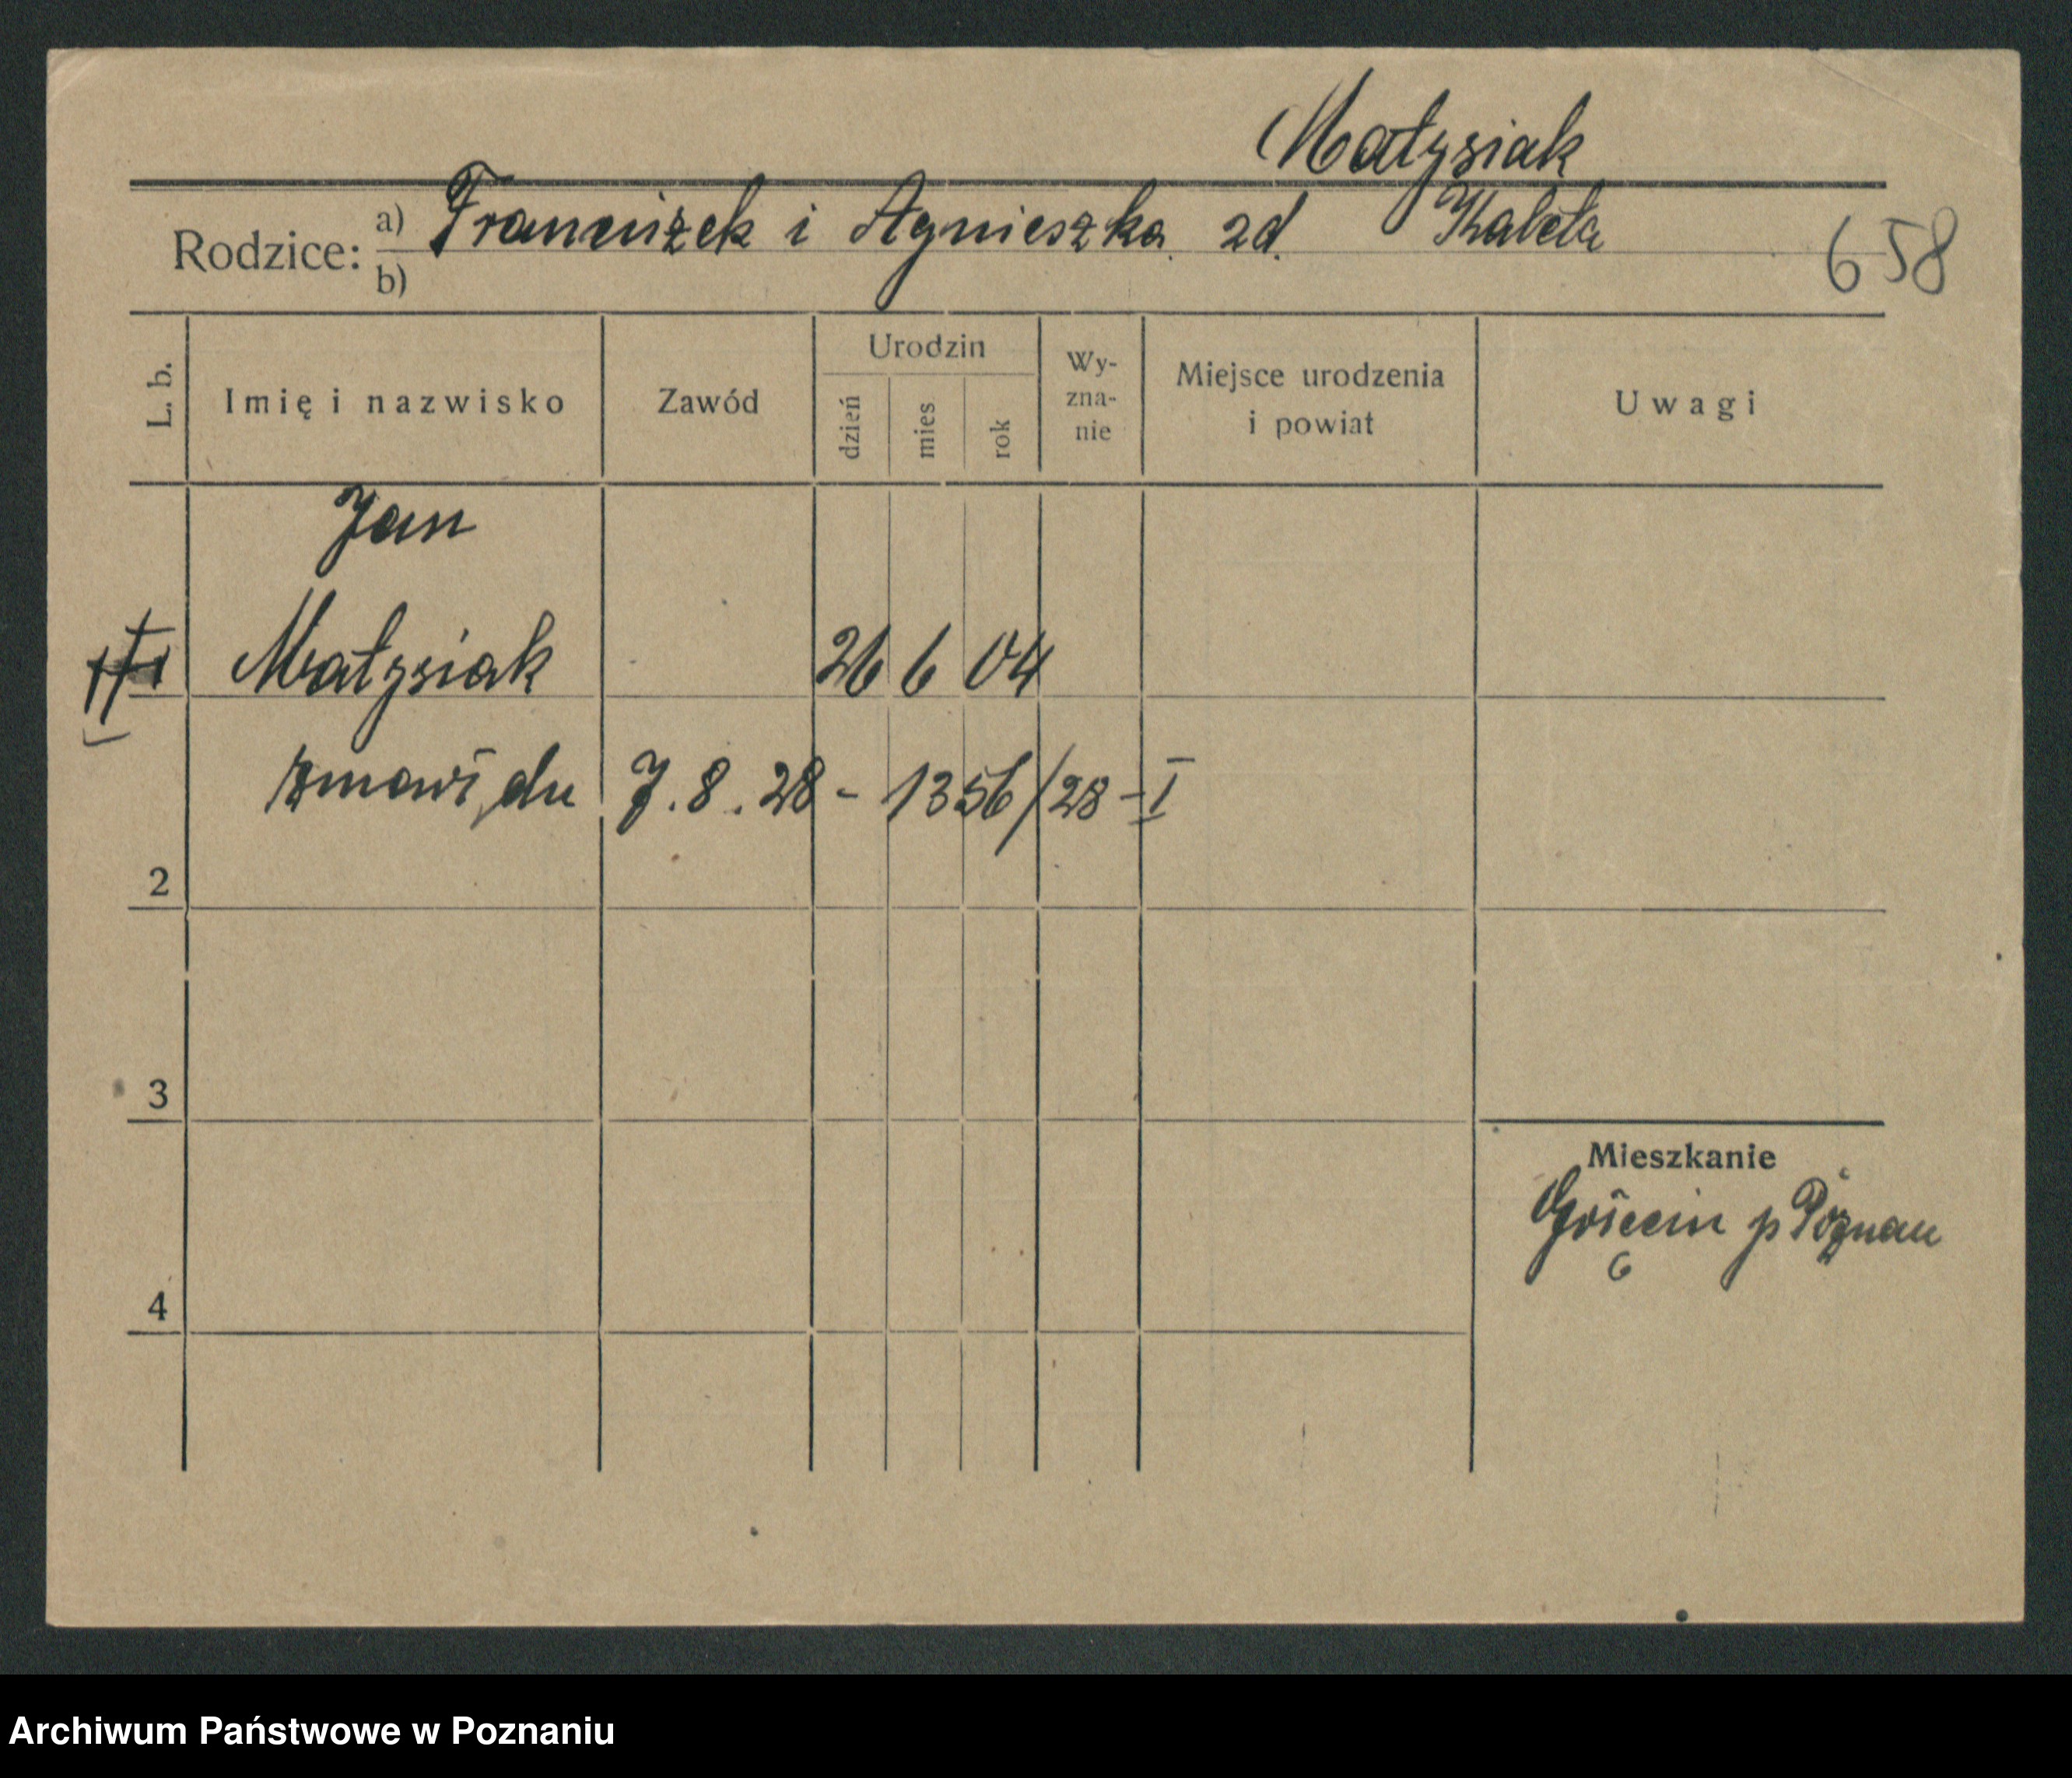 Małysiak
Rodzice: a) Franciszek i Agnieszka zd. Kaleta
b)
658
L. b.
Imię i nazwisko
Zawód
Urodzin
dzień
mies
rok
Wy-
zna-
nie
Miejsce urodzenia
i powiat
Uwagi
Jan
Małysiak 26 6 04
zmarł dn 7.8.28 - 1356/28 - I
2
3
Mieszkanie
p Poznań
4
Archiwum Państwowe w Poznaniu